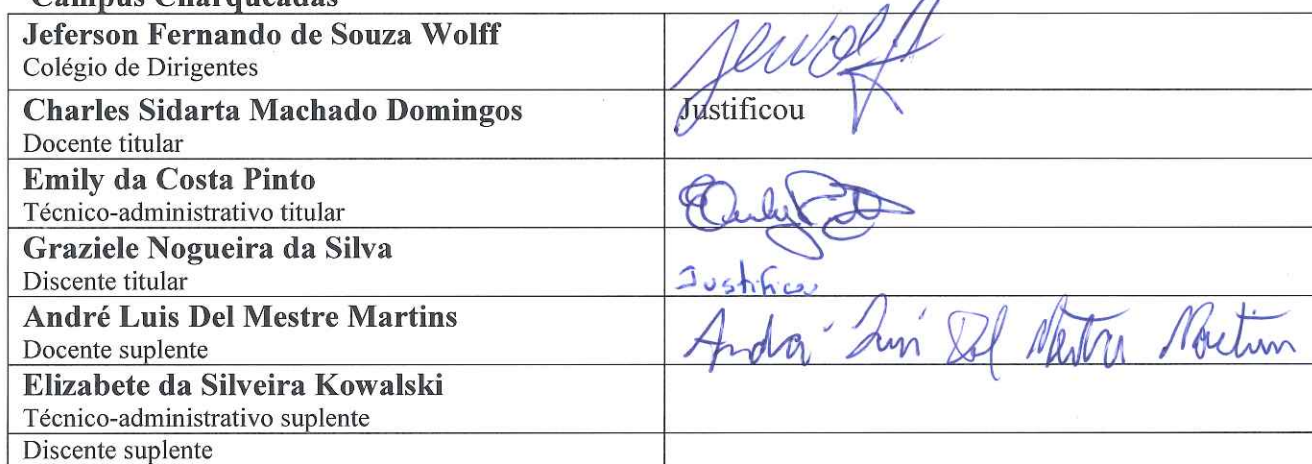 Campus Charqueadas
Jeferson Fernando de Souza Wolff
Colégio de Dirigentes
Charles Sidarta Machado Domingos
Justificou
Docente titular
Emily da Costa Pinto
Técnico-administrativo titular
Graziele Nogueira da Silva
Discente titular
Justificou
André Luis Del Mestre Martins
Docente suplente
André Luis Del Mestre Martins
Elizabete da Silveira Kowalski
Técnico-administrativo suplente
Discente suplente